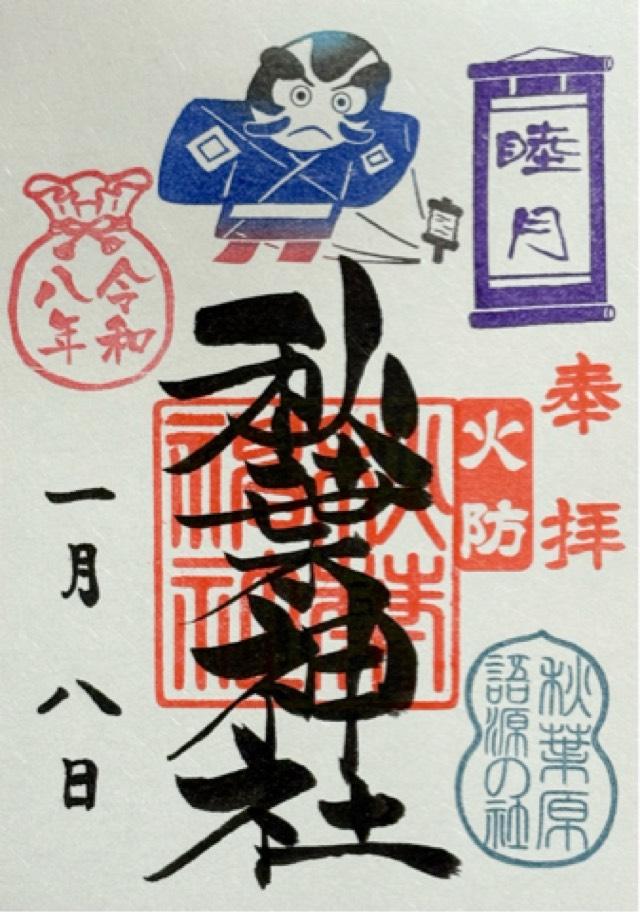 睦月
奉拝
火防
秋葉神社
秋葉神社
秋葉原
語源の社
令和
八年
一月八日